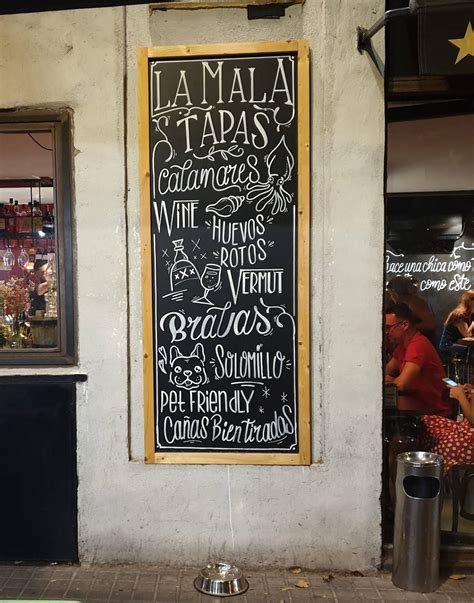 LA MALA
TAPAS
Calamares
WINE
HUEVOS
ROTOS
VERMUT
Bravas
SOLOMILLO
PET FRIENDLY
Cañas Bien tiradas
hace una chica como
como este